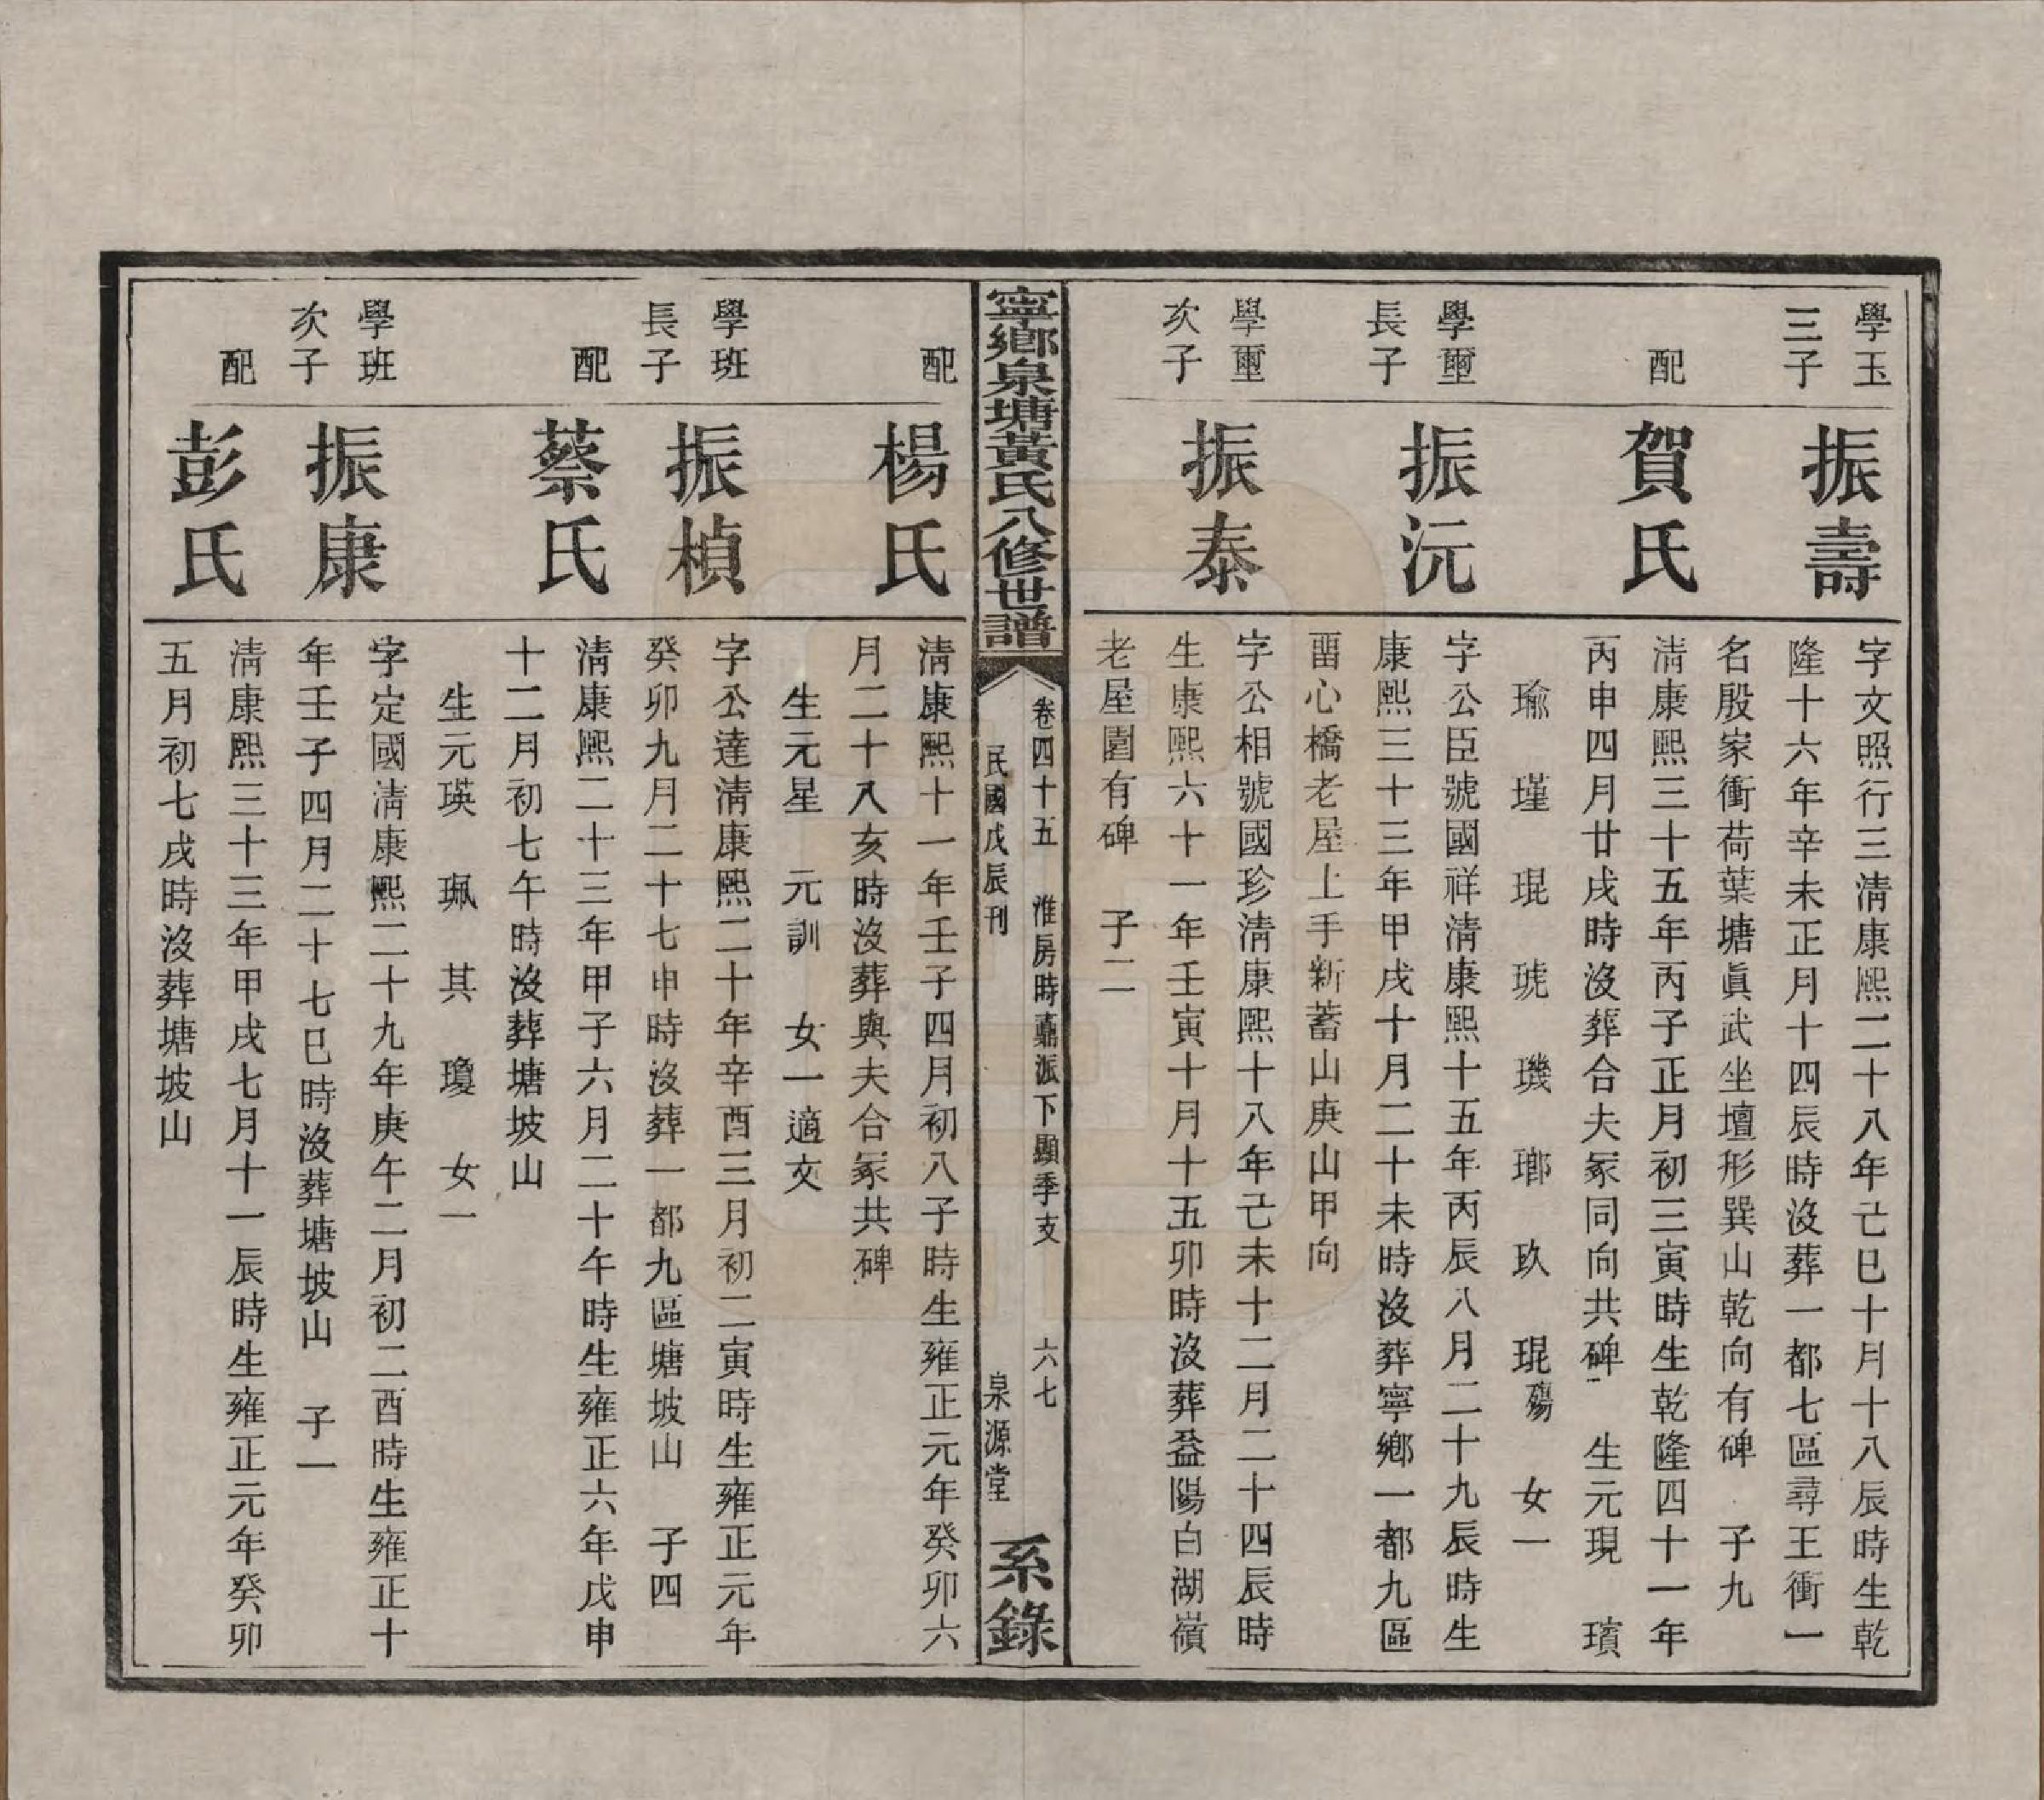 學玉
三子
振壽
字文照行三清康熙二十八年己巳十月十八辰時生乾
隆十六年辛未正月十四辰時沒葬一都七區尋王衝一
名殷家衝荷葉塘眞武坐壇形巽山乾向有碑 子九
配
賀氏
清康熙三十五年丙子正月初三寅時生乾隆四十一年
丙申四月廿戌時沒葬合夫冢同向共碑 生元現 璸
瑜 瑾 琨 琥 璣 瑯 玖 琨殤 女一
學璽
長子
振沅
字公臣號國祥清康熙十五年丙辰八月二十九辰時生
康熙三十三年甲戌十月二十未時沒葬寧鄉一都九區
畱心橋老屋上手新蓄山庚山甲向
學璽
次子
振泰
字公相號國珍清康熙十八年己未十二月二十四辰時
生康熙六十一年壬寅十月十五卯時沒葬益陽白湖嶺
老屋園有碑 子二
寧鄉泉塘黃氏八修世譜
卷四十五 淮房時鼒派下顯季支 六七
民國戊辰刊 泉源堂
系錄
配
楊氏
清康熙十一年壬子四月初八子時生雍正元年癸卯六
月二十八亥時沒葬與夫合冢共碑
生元星 元訓 女一適文
學班
長子
振楨
字公達清康熙二十年辛酉三月初二寅時生雍正元年
癸卯九月二十七申時沒葬一都九區塘坡山 子四
配
蔡氏
清康熙二十三年甲子六月二十午時生雍正六年戊申
十二月初七午時沒葬塘坡山
生元瑛 珮 其 瓊 女一
學班
次子
振康
字定國清康熙二十九年庚午二月初二酉時生雍正十
年壬子四月二十七巳時沒葬塘坡山 子一
配
彭氏
清康熙三十三年甲戌七月十一辰時生雍正元年癸卯
五月初七戌時沒葬塘坡山